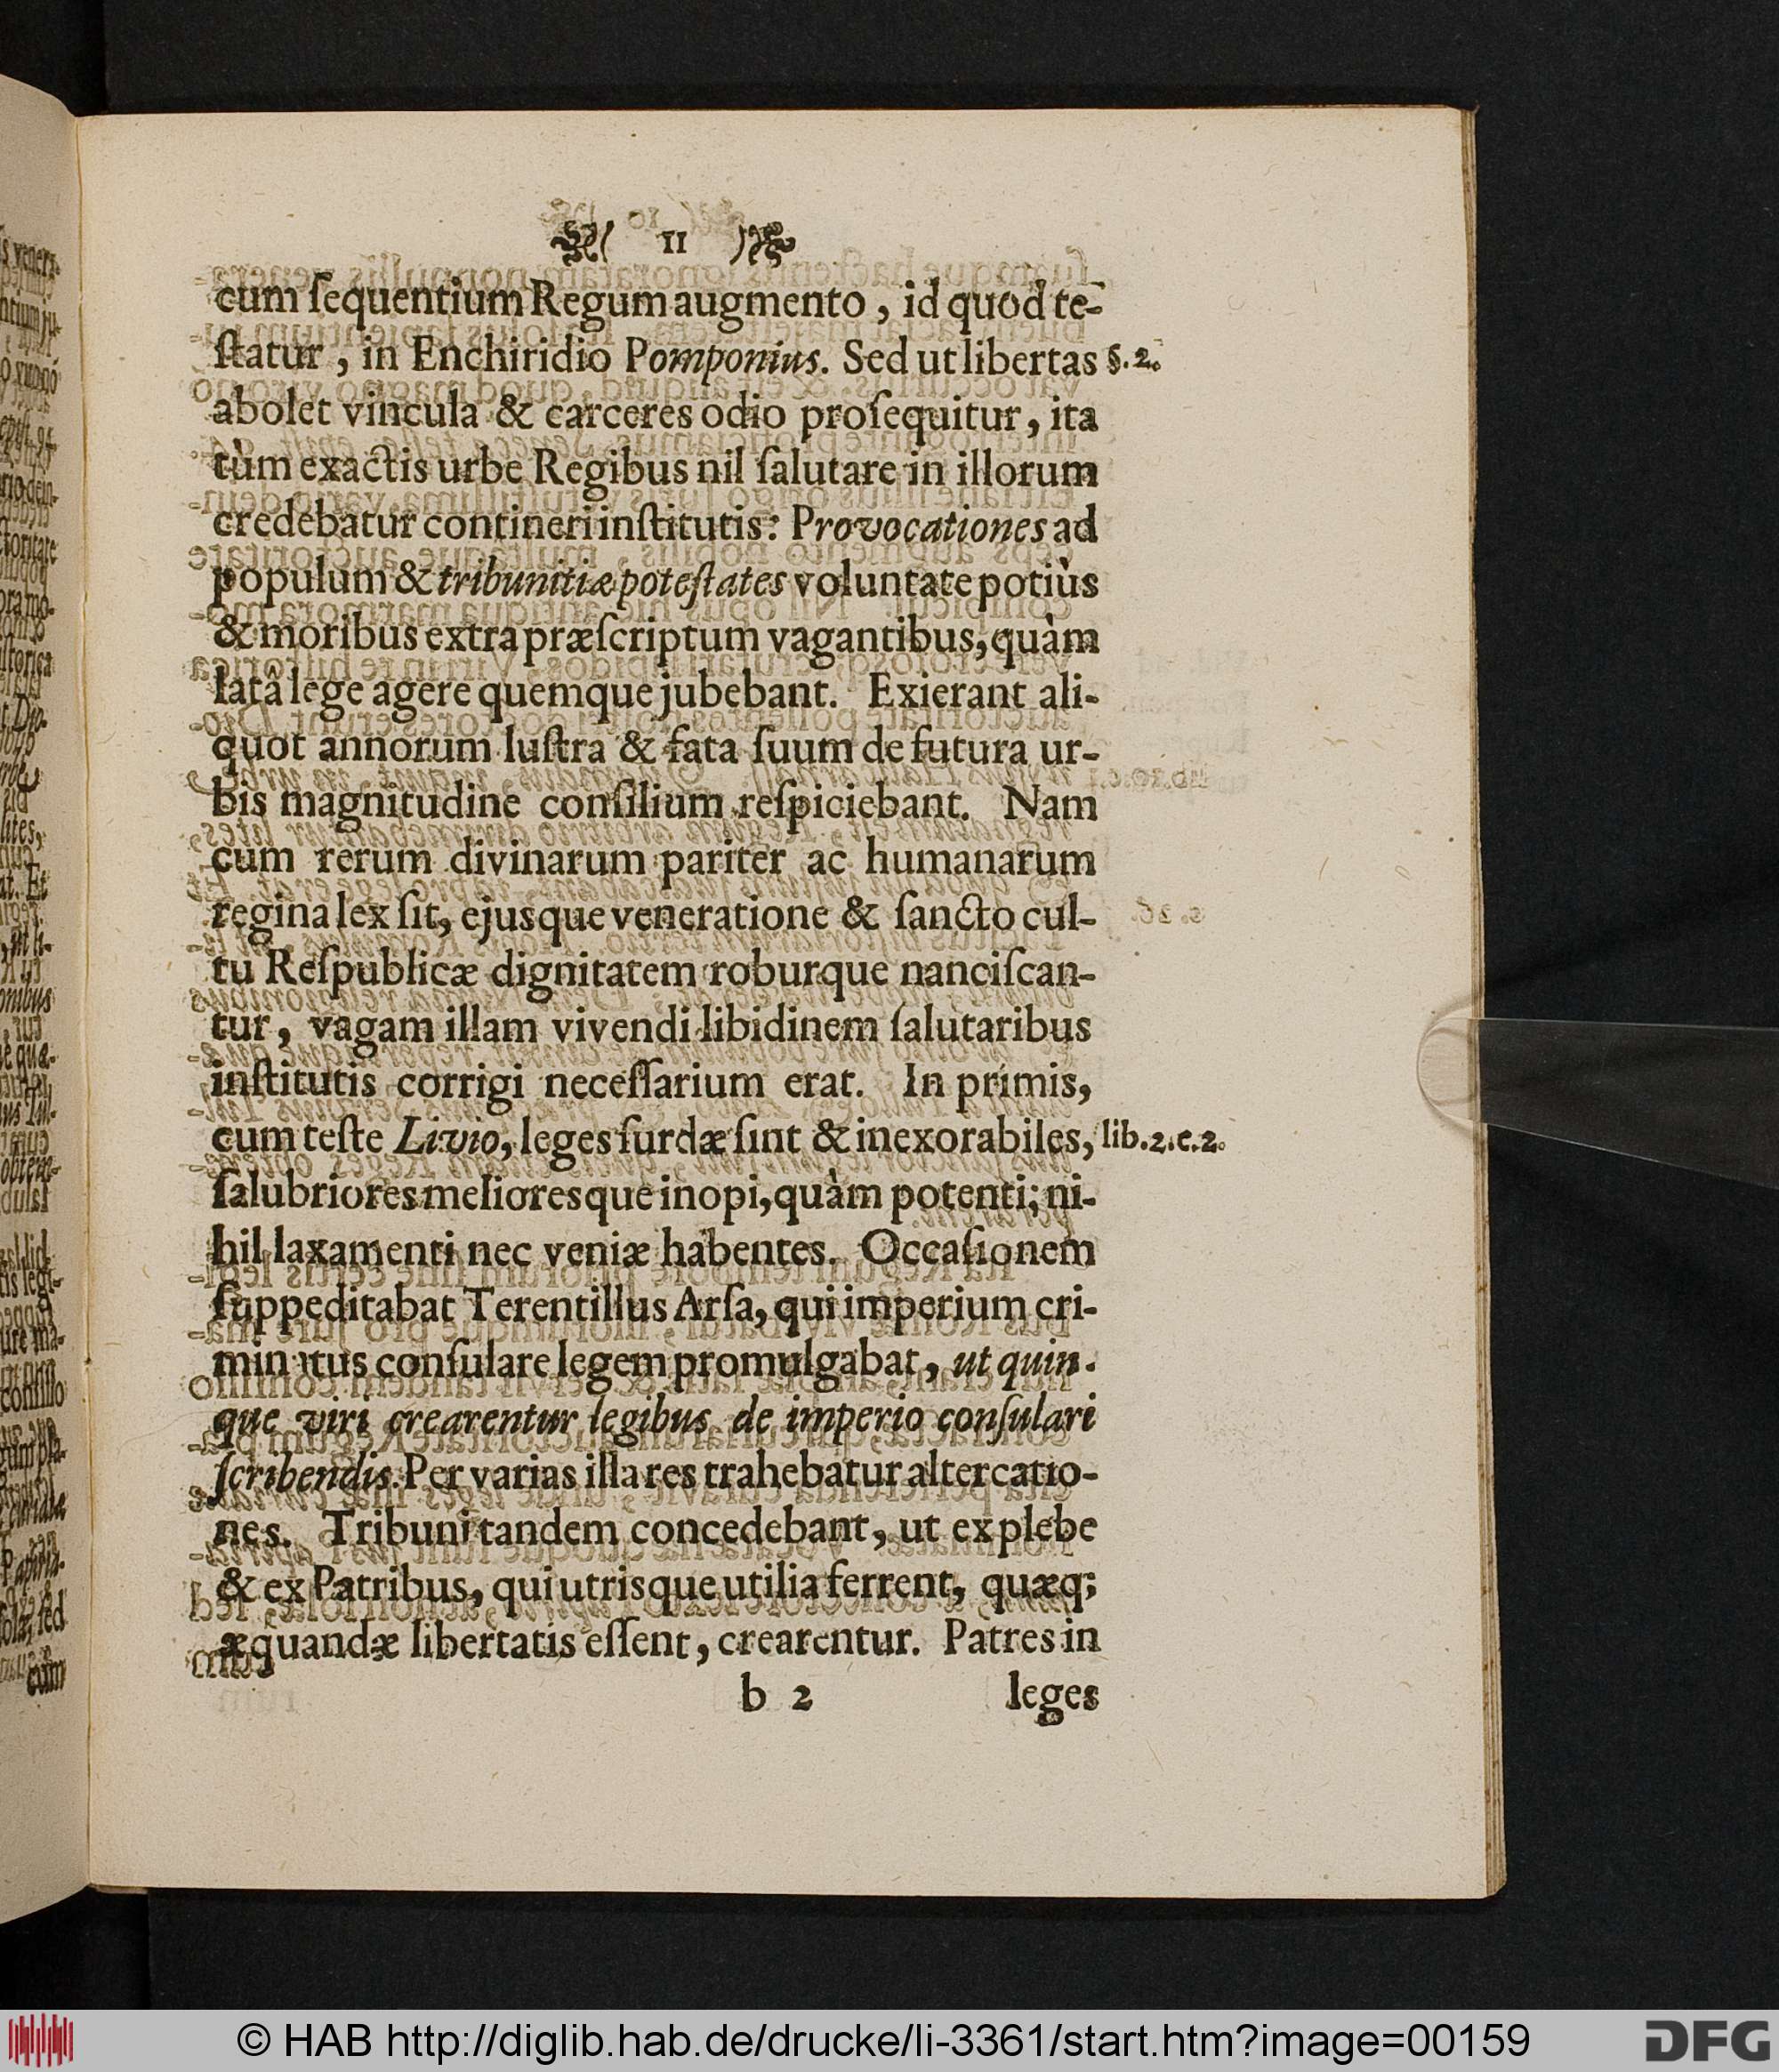 ( 11 )
cum ſequentium Regum augmento, id quod te-
ſtatur, in Enchiridio Pomponius. Sed ut libertas §. 2.
abolet vincula & carceres odio proſequitur, ita
tùm exactis urbe Regibus nil ſalutare in illorum
credebatur contineri inſtitutis: Provocationes ad
populum & tribunitiæ poteſtates voluntate potiùs
& moribus extra præſcriptum vagantibus, quàm
latâ lege agere quemque jubebant. Exierant ali-
quot annorum luſtra & fata ſuum de futura ur-
bis magnitudine conſilium reſpiciebant. Nam
cum rerum divinarum pariter ac humanarum
regina lex ſit, ejusque veneratione & ſancto cul-
tu Reſpublicæ dignitatem roburque nanciſcan-
tur, vagam illam vivendi libidinem ſalutaribus
inſtitutis corrigi neceſſarium erat. In primis,
cum teſte Livio, leges ſurdæ ſint & inexorabiles, lib. 2. c. 2.
ſalubriores melioresque inopi, quàm potenti; ni-
hil laxamenti nec veniæ habentes. Occaſionem
ſuppeditabat Terentillus Arſa, qui imperium cri-
min tus conſulare legem promulgabat, ut quin-
que viri crearentur legibus de imperio conſulari
ſcribendis. Per varias illa res trahebatur altercatio-
nes. Tribuni tandem concedebant, ut ex plebe
& ex Patribus, qui utrisque utilia ferrent, quæq;
æquandæ libertatis eſſent, crearentur. Patres in
b 2 leges
© HAB http://diglib.hab.de/drucke/li-3361/start.htm?image=00159 DFG